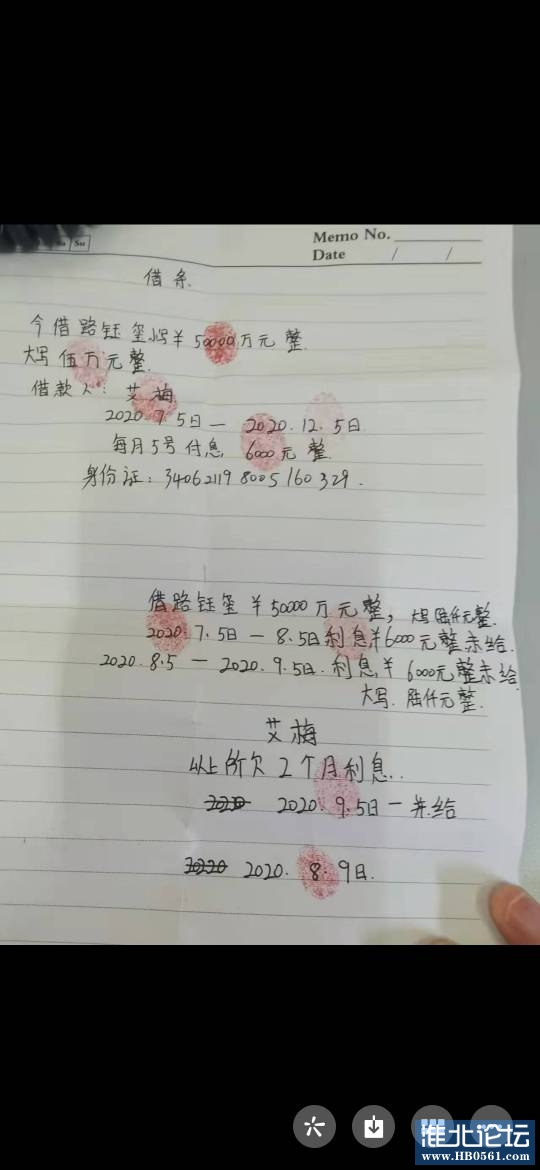 Su
Memo No.
Date / /
借条
今借路钰玺小写¥50000万元整
大写伍万元整.
借款人: 艾梅
2020.7.5日一2020.12.5日
每月5号付息6000元整.
身份证: 340621198005160329.
借路钰玺¥50000万元整, 大写陆仟元整.
2020.7.5日一8.5日利息¥6000元整未给.
2020.8.5一2020.9.5日.利息¥6000元整未给
大写.陆仟元整.
艾梅
以上所欠2个月利息..
2020 2020.9.5日一并给
2020 2020.8.9日.
淮北论坛
www.HB0561.com